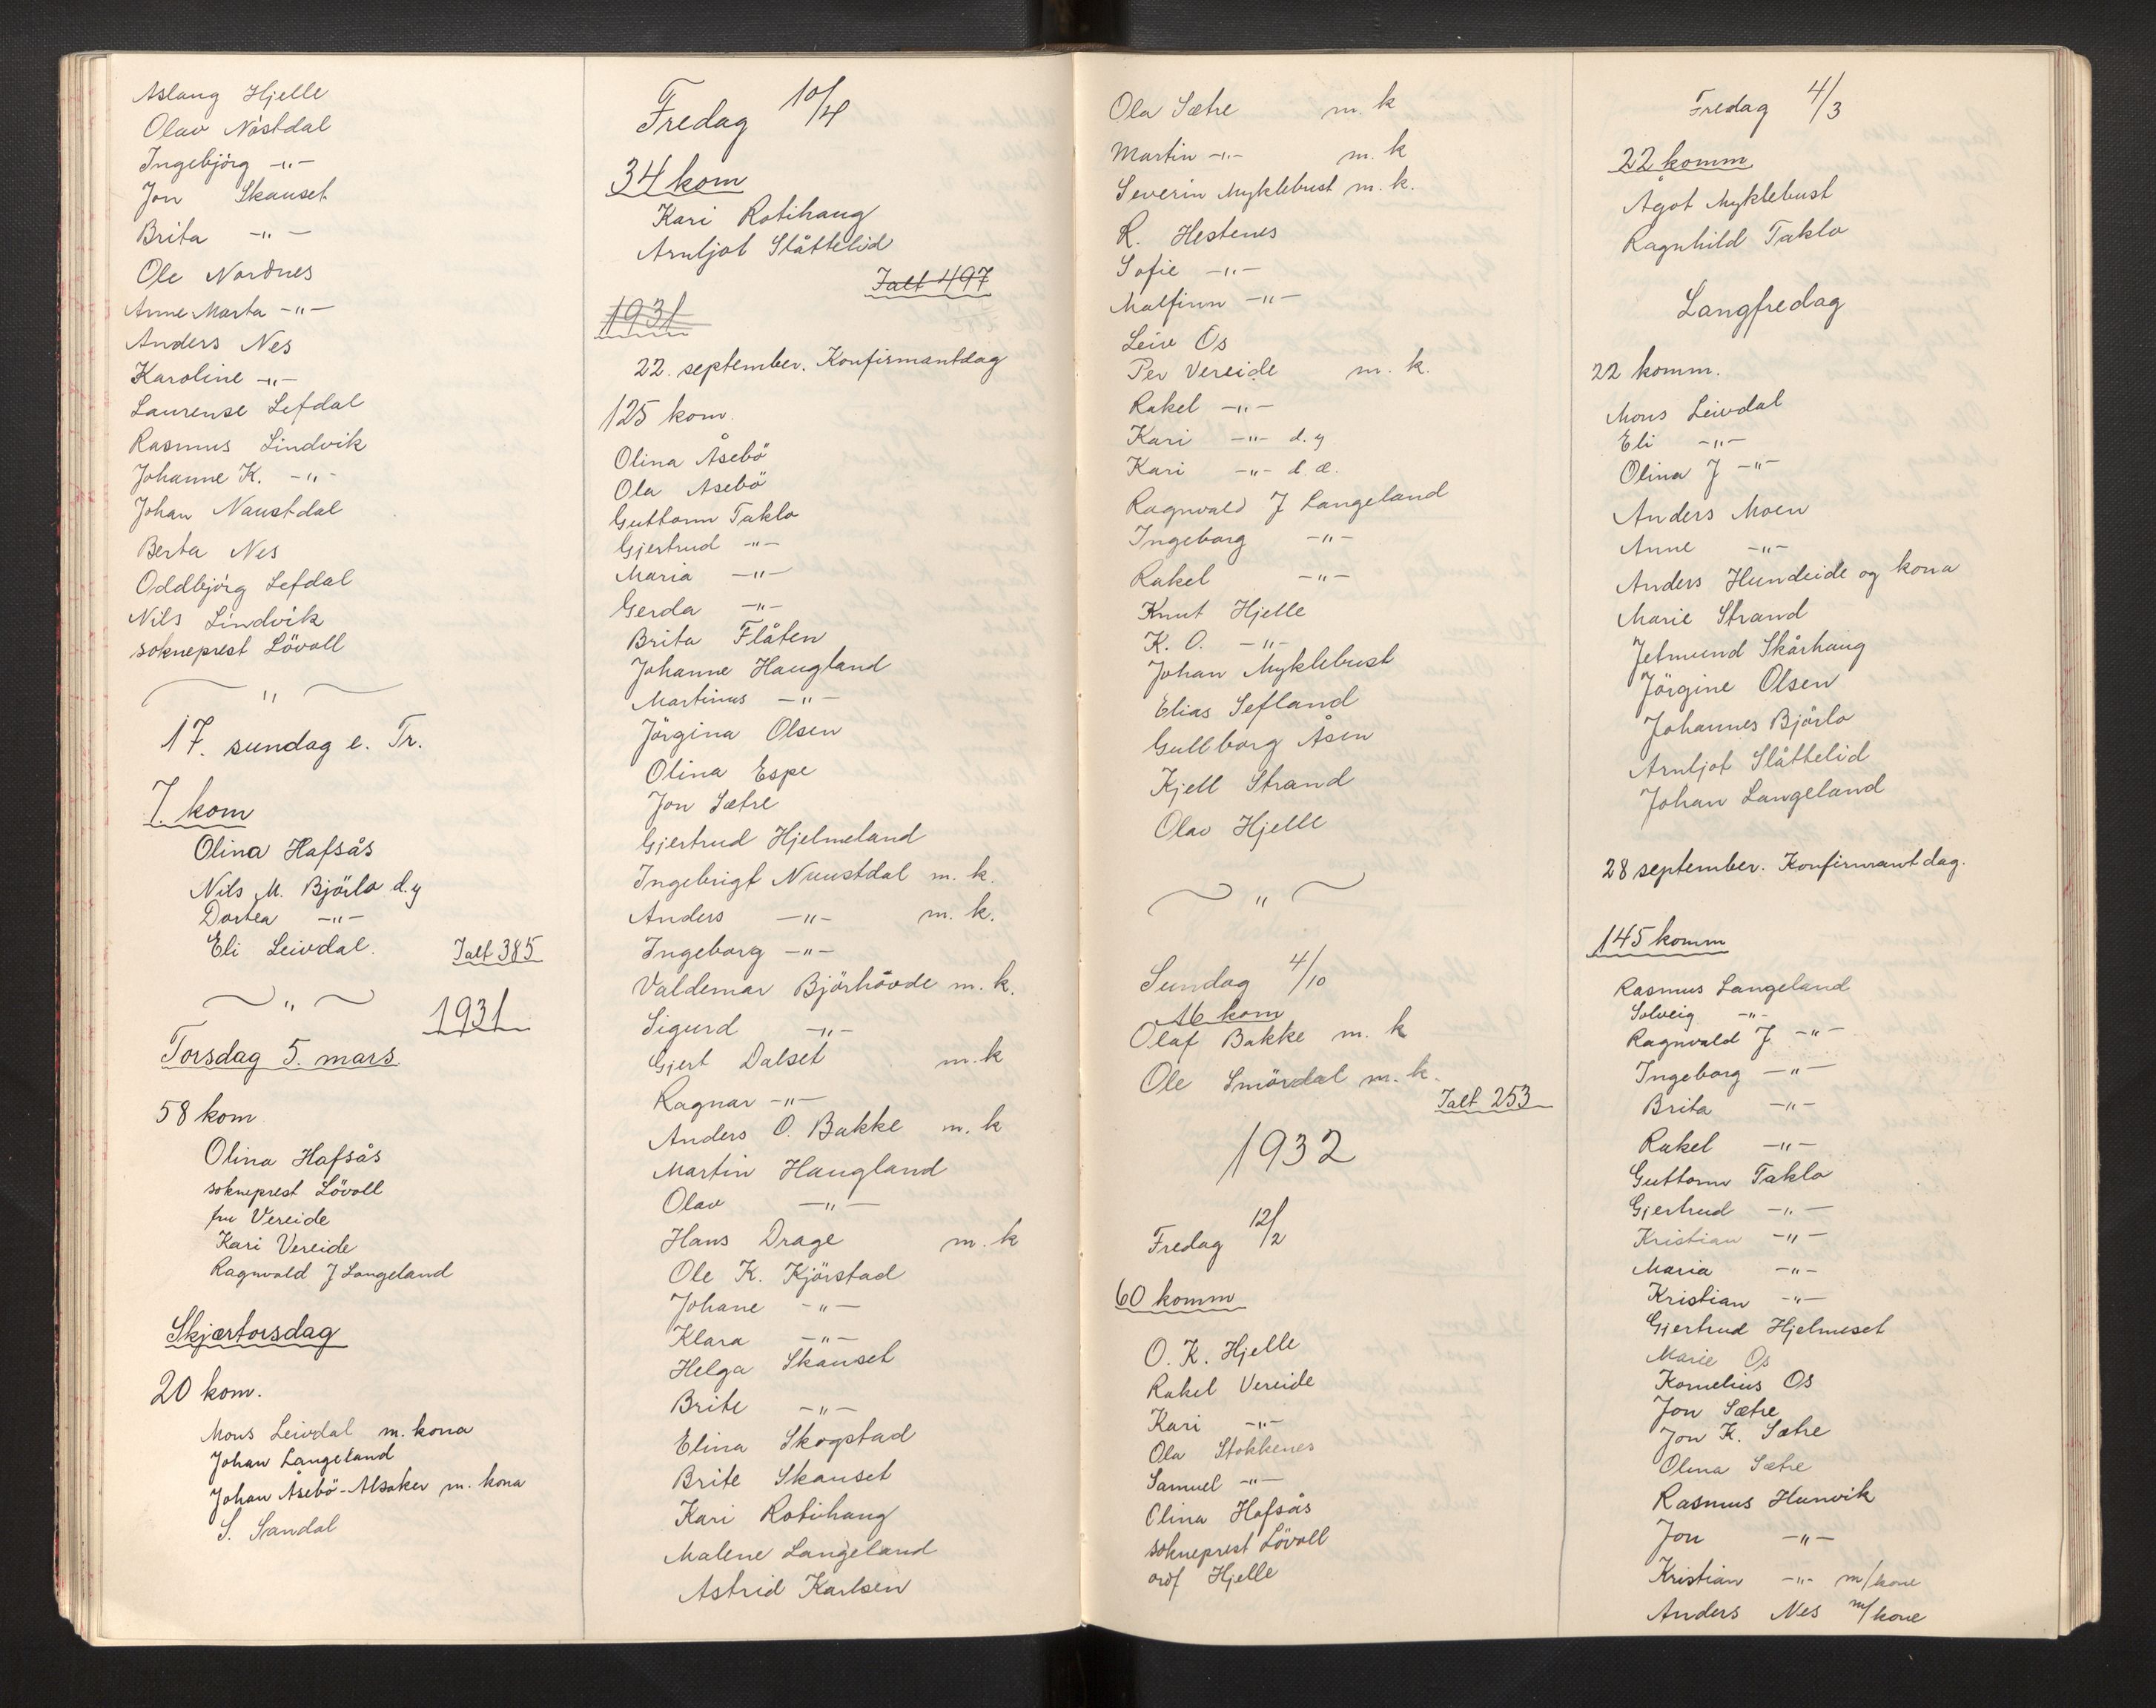 Aslaug Hjelle
Olav Nöstdal
Ingebjörg -"-
Jon Skauset
Brita -"-
Ole Nordnes
Anne Marta -"-
Anders Nes
Karoline -"-
Laurense Lefdal
Rasmus Lindvik
Johanne K. -"-
Johan Naustdal
Berta Nes
Oddbjörg Lefdal
Nils Lindvik
sokneprest Lövoll
"
17. sundag e. Tr.
7. kom
Olina Hafsås
Nils M. Björlo d.y
Dortea -"-
Eli Leivdal.
Ialt 385
"
1931
Torsdag 5. mars
58 kom
Olina Hafsås
sokneprest Lövoll
fru Vereide
Kari Vereide
Ragnvald J Langeland
Skjærtorsdag
20 kom.
Mons Leivdal m. kona
Johan Langeland
Johan Åsebö-Alsaker m. kona
S. Sandal
Fredag 10/4
34 kom
Kari Rotihaug
Arnljot Slåttelid
Ialt 497
1931
22. september. Konfirmantdag
125 kom.
Olina Åsebö
Ola Åsebö
Guttorm Taklo
Gjertrud -"-
Maria -"-
Gerda -"-
Brita Flåten
Johanne Haugland
Martinus -"-
Jörgina Olsen
Olina Espe
Jon Sætre
Gjertrud Hjelmeland
Ingebrigt Naustdal m. k.
Anders -"- m. k.
Ingeborg -"-
Valdemar Björhövde m. k.
Sigurd -"-
Gjert Dalset m. k
Ragnar -"-
Anders O. Bakke m. k
Martin Haugland
Olav -"-
Hans Drage m. k
Ole K. Kjörstad
Johane -"-
Klara -"-
Helga Skauset
Brite -"-
Elina Skogstad
Brite Skauset
Kari Rotihaug
Malene Langeland
Astrid Karlsen
Ola Sætre m. k
Martin -"- m. k
Severin Myklebust m. k.
R. Hestenes
Sofie -"-
Malfinn -"-
Leiv Os
Per Vereide m. k.
Rakel -"-
Kari -"- d. y
Kari -"- d. e.
Ragnvald J Langeland
Ingeborg -"-
Rakel -"-
Knut Hjelle
K. O. -"-
Johan Myklebust
Elias Sefland
Gullborg Åsen
Kjell Strand
Olav Hjelle
"
Sundag 4/10
16 kom
Olaf Bakke m. k
Ole Smördal m. k.
Ialt 253
1932
Fredag 12/2
60 komm
O. K. Hjelle
Rakel Vereide
Kari -"-
Ola Stokkenes
Samuel -"-
Olina Hafsås
sokneprest Lövoll
ordf Hjelle
Fredag 4/3
22 komm
Ågot Myklebust
Ragnhild Taklo
Langfredag
22 komm.
Mons Leivdal
Eli -"-
Olina J -"-
Anders Moen
Anne -"-
Anders Hundeide og kona
Marie Strand
Jetmund Skårhaug
Jörgine Olsen
Johannes Björlo
Arnljot Slåttelid
Johan Langeland
28 september. Konfirmantdag.
145 komm
Rasmus Langeland
Solveig -"-
Ragnvald J -"-
Ingeborg -"-
Brita -"-
Rakel -"-
Guttorm Taklo
Gjertrud -"-
Kristian -"-
Maria -"-
Kristian -"-
Gjertrud Hjelmeset
Marie Os
Kornelius Os
Jon Sætre
Jon K. Sætre
Olina Sætre
Rasmus Hunvik
Jon -"-
Kristian -"- m/kone
Anders Nes m/kone